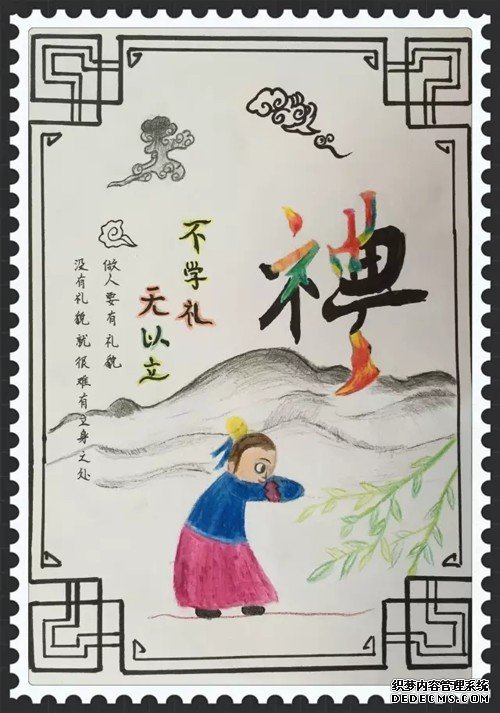 不学礼
无以立
做人要有礼貌
没有礼貌就很难有立身之处
织梦内容管理系统
DEDECMS.COM